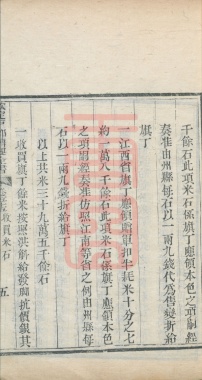 千餘石此項米石係旗丁應領之項嗣經
奏准由州縣每石以一兩九錢代為售變折給
旗丁
一江西省旗丁應領贈軍扣半耗米十分之七
約一萬八千餘石此項米石係旗丁應領本色
之項嗣經奏准仿照江南等省之例由州縣每
石以一兩九錢折給旗丁
以上共米三十九萬五千餘石
一收買旗丁餘米按照淇縣給發興抗價銀其
收買米石
五